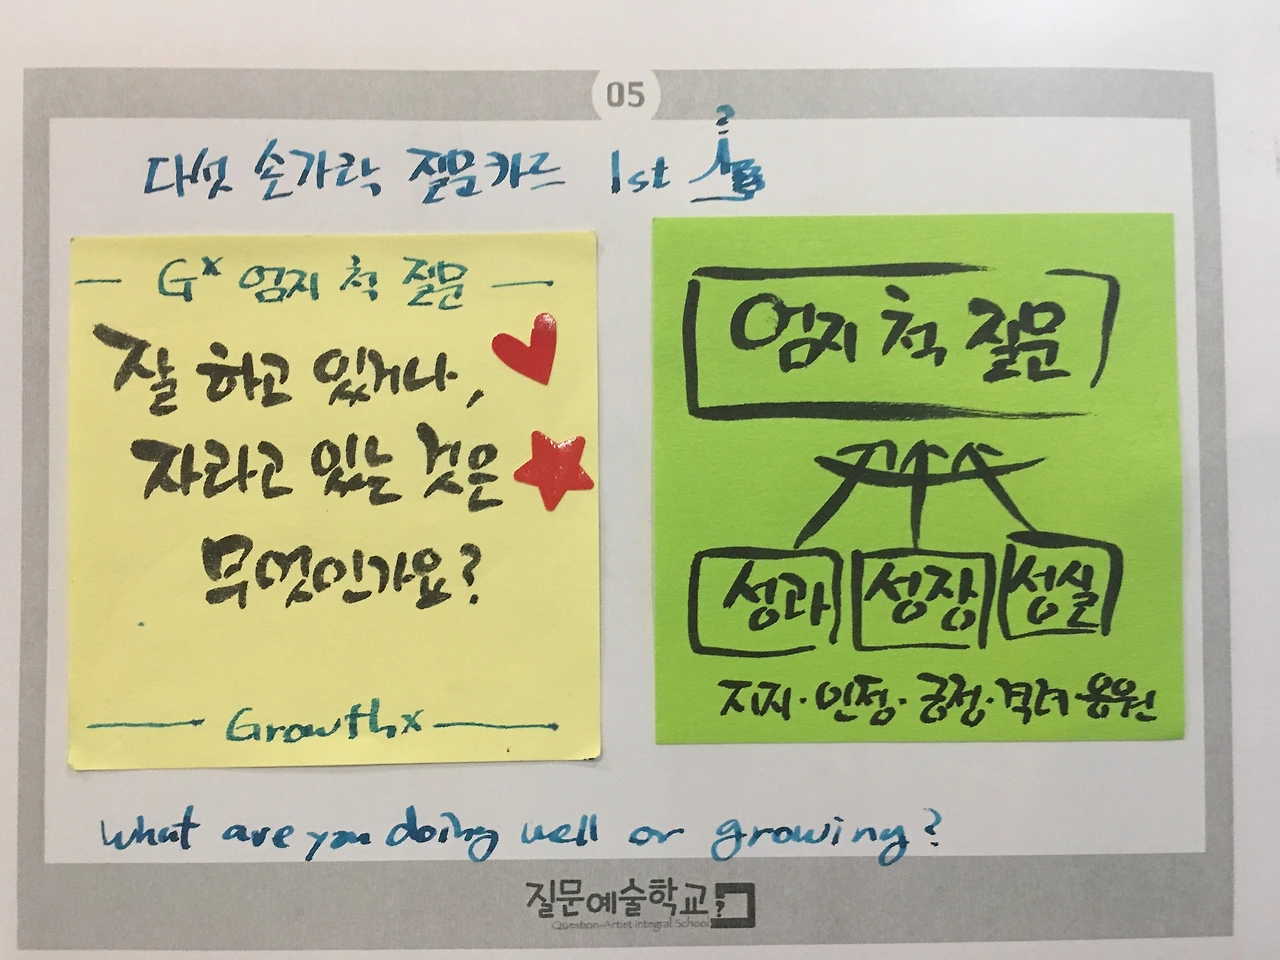 05
다섯 손가락 질문카드 1st
G^x 엄지 척 질문
잘 하고 있거나,
자라고 있는 것은
무엇인가요?
Growthx
엄지 척 질문
성과 성장 성실
지지·인정·긍정·격려·응원
What are you doing well or growing?
질문예술학교
Question-Artist Integral School